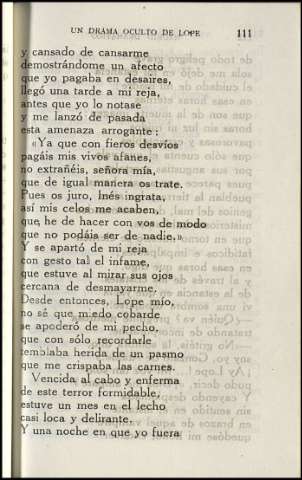 UN DRAMA OCULTO DE LOPE 111
y cansado de cansarme
demostrándome un afecto
que yo pagaba en desaires,
llegó una tarde a mi reja,
antes que yo lo notase
y me lanzó de pasada
esta amenaza arrogante:
«Ya que con fieros desvíos
pagáis mis vivos afanes,
no extrañéis, señora mía,
que de igual manera os trate.
Pues os juro, Inés ingrata,
así mis celos me acaben,
que he de hacer con vos de modo
que no podáis ser de nadie.»
Y se apartó de mi reja
con gesto tal el infame,
que estuve al mirar sus ojos
cercana de desmayarme.
Desde entonces, Lope mío,
no sé qué miedo cobarde
se apoderó de mi pecho,
que con sólo recordarle
temblaba herida de un pasmo
que me crispaba las carnes.
Vencida al cabo y enferma
de este terror formidable,
estuve un mes en el lecho
casi loca y delirante.
Y una noche en que yo fuera